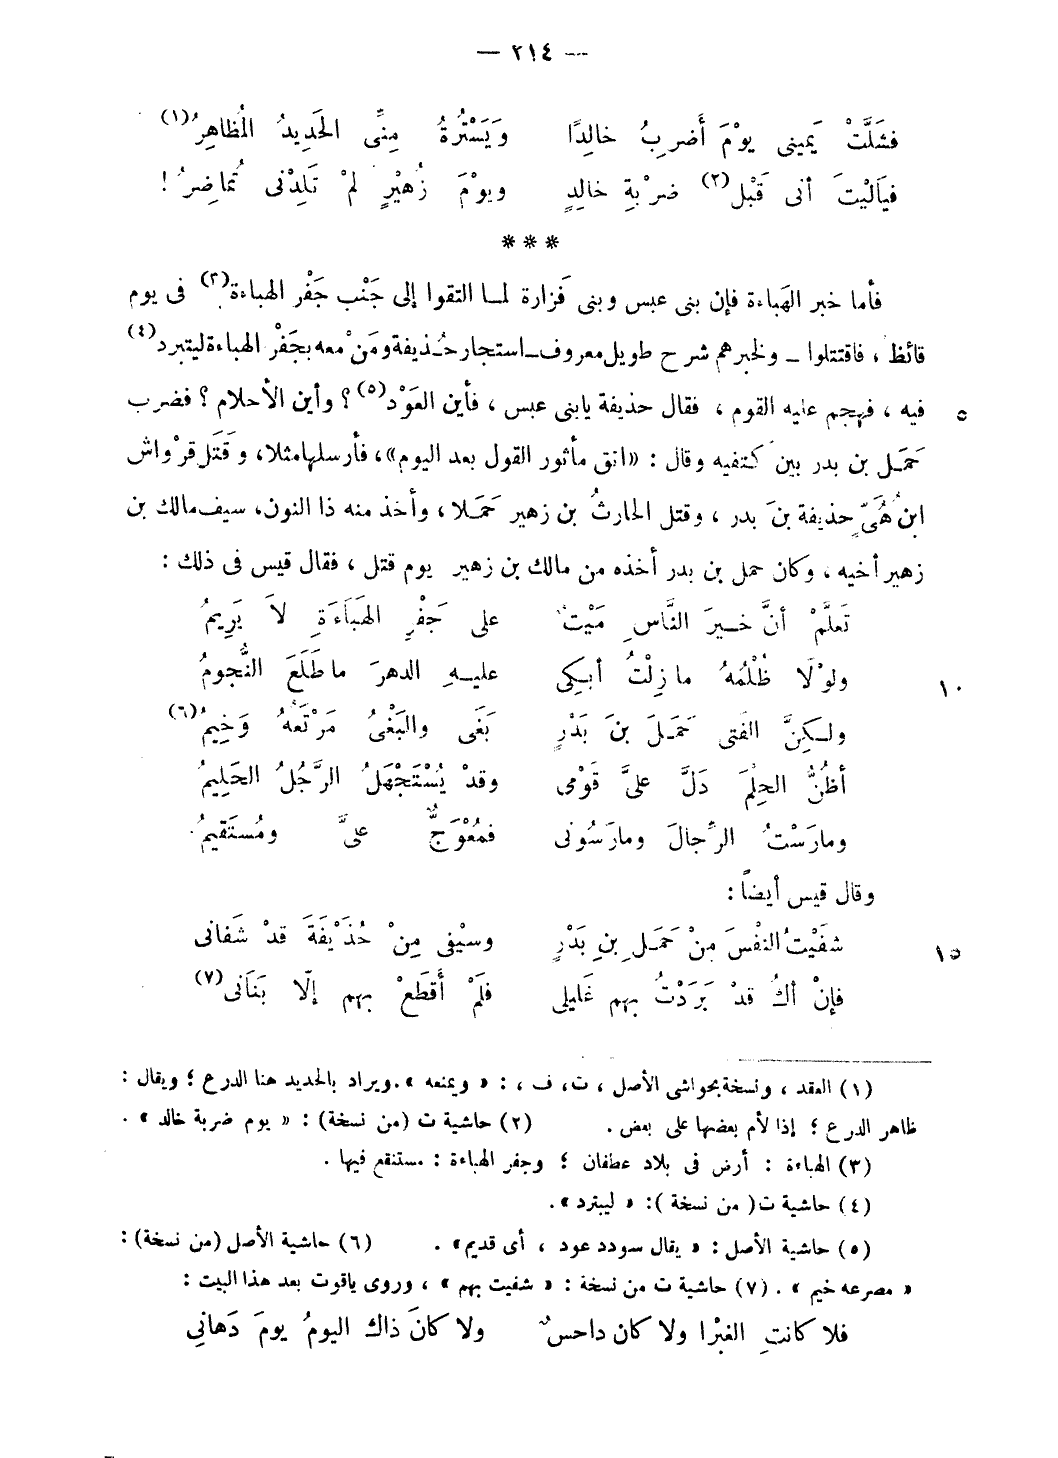 — ٢١٤ —
فشَلَّتْ يَمينى يوْمَ أَضربُ خالِدًا وَيَسْتُرهُ مِنِّى الحَدِيدُ المُظاهِرُ(١)
فيَالَيْتَ أنى قَبْل(٢) ضرْبةِ خالدٍ ويوْمَ زُهيْرٍ لمْ تَلِدْنى تُماضِرُ !
***
فأما خبر الهَباءة فإن بنى عبس وبنى فَزارة لمـا التقوا إلى جَنْب جَفْر الهباءة(٣) فى يوم
قائظ ، فاقتتلوا – ولخبرهم شرح طويل معروف – استجار حُذيفة ومَنْ معه بجَفْر الهباءة ليتبرد(٤)
فيه ، فهجم عليه القوم ، فقال حذيفة يابنى عبس ، فأين العَوْد(٥) ؟ وأين الأحلام ؟ فضرب ٥
حَمَـل بن بدر بين كتفيه وقال : «اتق مأثور القول بعد اليوم»، فأرسلها مثلا، وقَتَل قرْواش
ابنُ هُنَىٍّ حذيفة بنَ بدر ، وقتل الحارثُ بن زهير حَمَلا ، وأخذ منه ذا النون، سيف مالك بن
زهير أخيه ، وكان حمل بن بدر أخذه من مالك بن زهير يوم قتل ، فقال قيس فى ذلك :
تَعلَّمْ أنَّ خـيرَ النَّاسِ مَيْتٌ على جَفْرِ الهَبَاءَةِ لاَ يَرِيمُ
ولوْلَا ظُلْمُهُ مازِلْتُ أبكِى عليـهِ الدهرَ ماطَلَعَ النُّجومُ ١٠
ولـكِنَّ الفتى حَمَلَ بنَ بَدْرٍ بَغَى والبَغْىُ مَرْتَعُهُ وَخِيمُ(٦)
أظُنُّ الحِلْمَ دَلَّ علىَّ قَوْمى وقدْ يُسْتَجْهَلُ الرَّجُلُ الحَلِيمُ
ومارَسْتُ الرِّجالَ ومارَسُونى فمُعْوَجٌّ علىَّ ومُسْتَقيمُ
وقال قيس أيضاً :
شفَيْتُ النفْسَ مِنْ حَمَلِ بنِ بَدْرٍ وسيْفى مِنْ حُذَيْفَةَ قدْ شَفانى ١٥
فإنْ أكُ قدْ بَرَدْتُ بهم غَليلى فلَمْ أَقطَعْ بهم إلّا بَنَانى(٧)
(١) العقد ، ونسخة بحواشى الأصل ، ت، ف ، : « ويمنعه ».ويراد بالحديد هنا الدرع ؛ ويقال :
ظاهر الدرع ؛ إذا لأم بعضها على بعض . (٢) حاشية ت (من نسخة) : « يوم ضربة خالد » .
(٣) الهباءة : أرض فى بلاد غطفان ؛ وجفر الهباءة : مستنقع فيها .
(٤) حاشية ت( من نسخة ): « ليبترد ».
(٥) حاشية الأصل : « يقال سودد عود ، أى قديم» . (٦) حاشية الأصل (من نسخة) :
« مصرعه خيم » . (٧) حاشية ت من نسخة : « شفيت بهم » ، وروى ياقوت بعد هذا البيت :
فلا كانتِ الغبْرا ولا كان داحسٌ ولا كانَ ذاك اليومُ يومَ دَهانِي